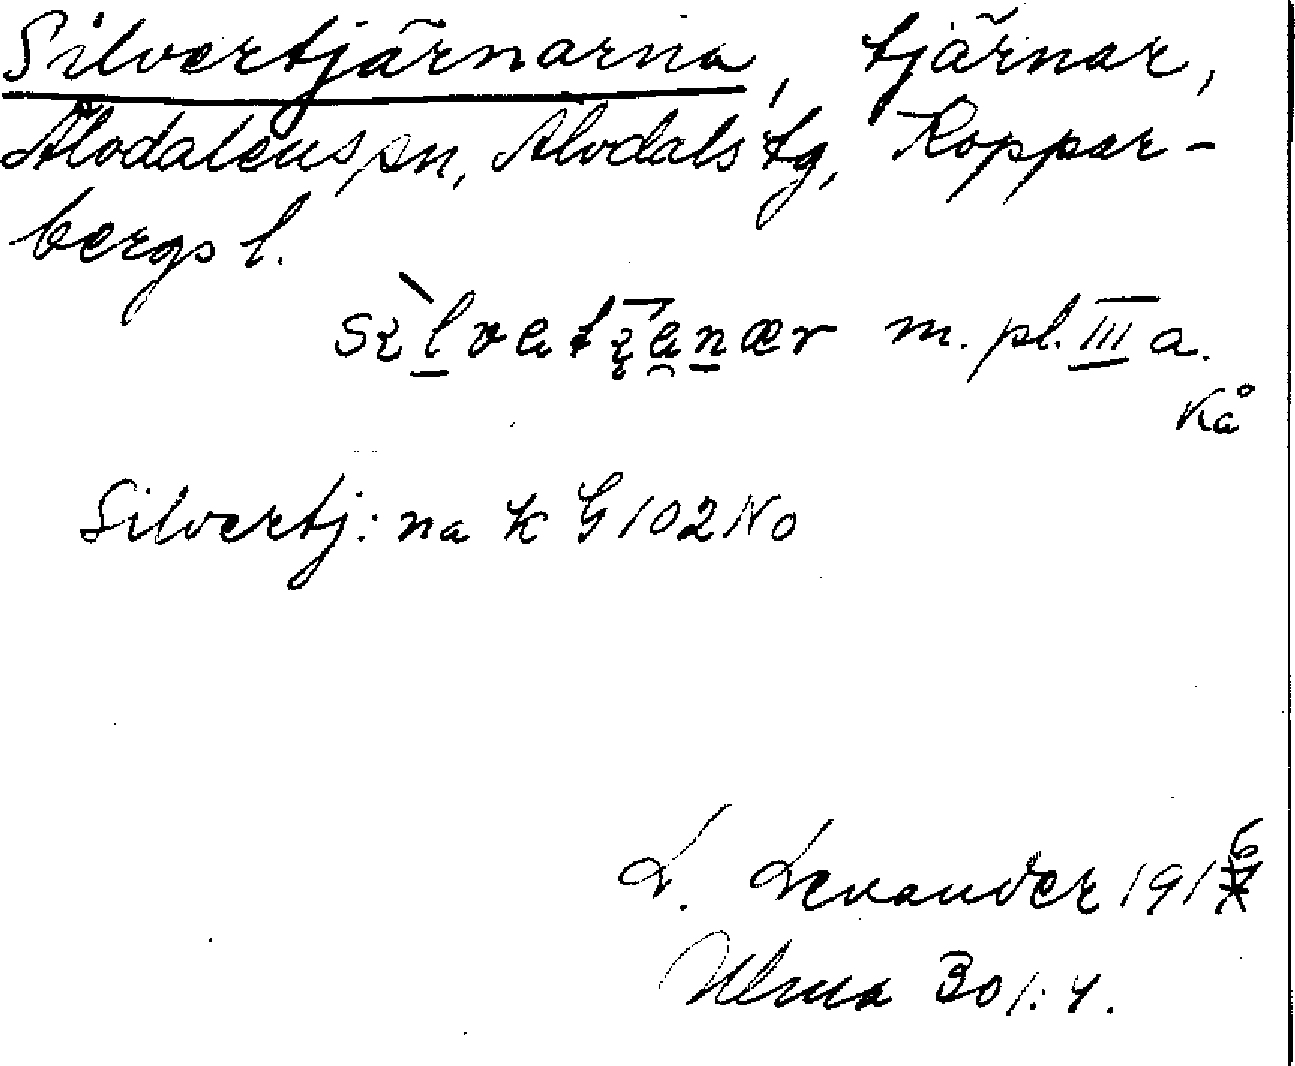 Silvertjärnarna, tjärnar,
Älvdalens sn, Älvdals tg, Koppar-
bergs l.
m. pl. III a.
Kå
Silvertj:na K G 102 No
L. Levander 1916
Ulma 301:4.